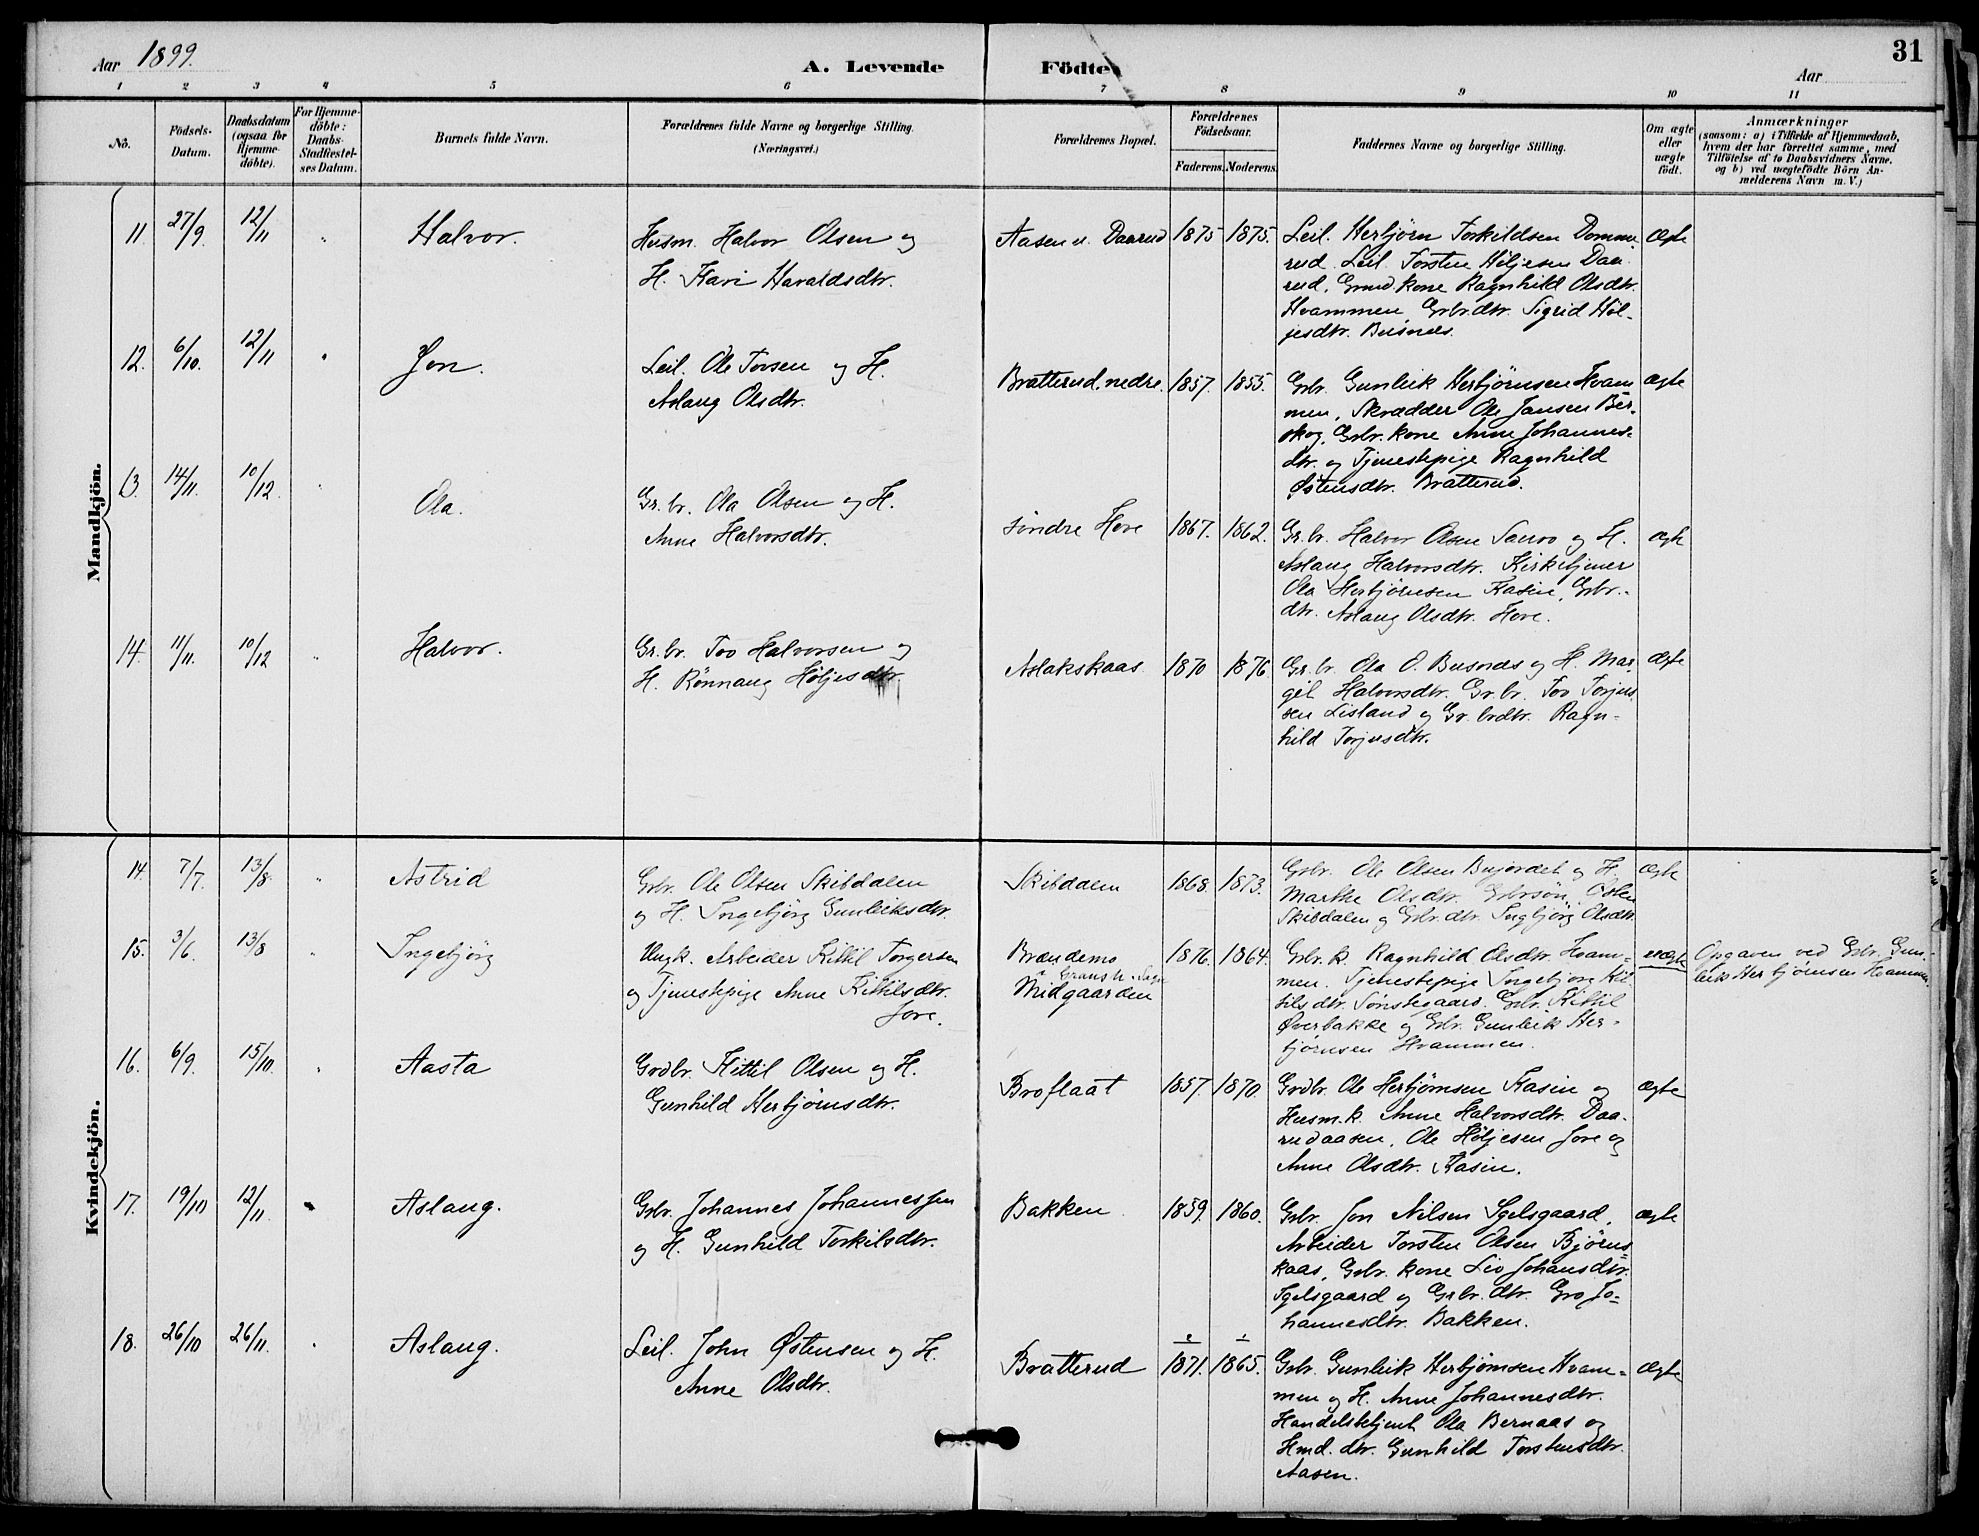 Aar 1899.
A. Levende Födte.
31
Aar
1 2 3 4 5 6 7 8 9 10 11
No.
Födsels-Datum.
Daabsdatum (ogsaa for Hjemme-döbte).
For Hjemme-döbte: Daabs-Stadfæstel-ses Datum.
Barnets fulde Navn.
Forældrenes fulde Navne og borgerlige Stilling. (Næringsvei.)
Forældrenes Bopæl.
Forældrenes Födselsaar.
Faderens. Moderens.
Faddernes Navne og borgerlige Stilling.
Om ægte eller uægte födt.
Anmærkninger
(saasom: a) i Tilfælde af Hjemmedaab,
hvem der har forrettet samme, med
Tilföielse af to Daabsvidners Navne.
og b) ved uægtefödte Börn An-
melderens Navn m. V.)
Mandkjön.
11. 27/9. 12/11 " Halvor.
Husm. Halvor Olsen og
H. Kari Haraldsdtr.
Aasen u. Daarud 1875 1875.
Leil. Herbjörn Torkildsen Domme
rud. Leil. Torsten Höljesen Daa
rud, Grmd kone Ragnhild Olsdtr.
Hvammen, Grbr.dtr. Sigrid Höl-
jesdtr. Busnes.
Ægte
12. 6/10. 12/11 " Jon.
Leil. Ole Torsen og H.
Aslaug Olsdtr.
Bratterud nedre. 1857. 1855.
Grbr. Gunleik Herbjørnsen Hvam
men, Skrædder Ole Jansen Bør-
skog, Grbr. kone Anne Johannes-
dtr. og Tjenestepige Ragnhild
Østensdtr. Bratterud.
ægte
13. 14/11. 10/12. " Ola.
Gr.br. Ola Olsen og H.
Anne Halvorsdtr.
söndre Hove 1867. 1862.
Gr.br. Halvor Olsen Sauro og H.
Aslaug Halvorsdtr. Kirketjener
Ola Herbjörnsen Kasin, Grbr.-
dtr. Aslaug Olsdtr. Hove.
ægte
14. 11/11. 10/12 " Halvor.
Gr.br. Tov Halvorsen og
H. Rönnaug Höljesdtr.
Aslakskaas 1870 1876
Gr.br. Ola O. Busnes og H. Mar-
git Halvorsdtr. Gr.br. Tov Torjus
sen Lisland og Gr.brdtr. Ragn-
hild Torjusdtr.
ægte
Kvindekjön.
14. 7/7. 13/8. " Astrid
Grbr. Ole Olsen Skibdalen
og H. Ingebjörg Gunleiksdtr.
Skibdalen 1868. 1873.
Grbr. Ole Olsen Bujordet og H.
Marthe Olsdtr. Grbrsön Østen
Skibdalen og Grbr.dtr. Ingbjörg Olsdtr.
Ægte
15. 3/6. 13/8 " Ingebjörg
Ungk. Arbeider Kittil Torgersen
og Tjenestepige Anne Kittilsdtr.
Jore.
Brændemo
Midgaarden
1876. 1864.
Grbr.k. Ragnhild Olsdtr. Hvam-
men. Tjenestepige Ingebjörg Kit
tilsdtr. Sönstegaard. Grbr. Kittil
Øverbakke og Grbr. Gunleik Her-
björnsen Hvammen.
uægte
Opgaven ved Grbr. Gun-
leik Herbjörnsen Hvammen.
16. 6/9. 15/10. " Aasta
Grdbr. Kittil Olsen og H.
Gunhild Herbjörnsdtr.
Broflaat 1857. 1870.
Grdbr. Ole Herbjörnsen Kasin og
Husm.k. Anne Halvorsdtr. Daa-
rudaasen, Ole Höljesen Jore og
Anne Olsdtr. Kasin.
Ægte
17. 19/10 12/11. " Aslaug.
Grbr. Johannes Johannessen
og H. Gunhild Torkilsdtr.
Bakken. 1859. 1860.
Grbr. Jon Nilsen Igelsgaard,
Arbeider Torsten Olsen Björns-
kaas, Grbr. kone Liv Johansdtr.
Igelsgaard og Grbr. dtr. Gro Jo-
hannesdtr. Bakken.
ægte
18. 26/10 26/11. " Aslaug.
Leil. John Østensen og H.
Anne Olsdtr.
Bratterud 1871. 1865.
Grbr. Gunleik Herbjörnsen Hvam-
men og H. Anne Johannesdtr.
Handelsbetjent Ola Bernaas og
Hmd. dtr. Gunhild Torstensdtr.
Aasen.
Ægte